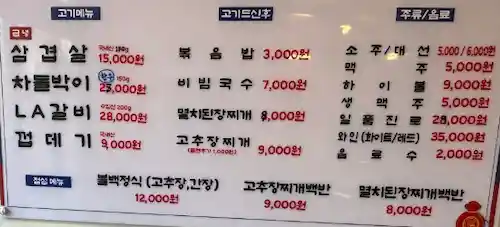 고기메뉴
금녕
삼겹살 국내산 180g 15,000원
차돌박이 150g 23,000원
LA갈비 수입산 200g 28,000원
껍데기 국내산 9,000원
고기드신후
볶음밥 3,000원
비빔국수 7,000원
멸치된장찌개 8,000원
고추장찌개 9,000원
주류/음료
소주/대선 5,000/6,000원
맥주 5,000원
하이볼 9,000원
생맥주 5,000원
일품진로 28,000원
와인(화이트/레드) 35,000원
음료수 2,000원
점심메뉴
볼백정식(고추장,간장) 12,000원
고추장찌개백반 9,000원
멸치된장찌개백반 8,000원